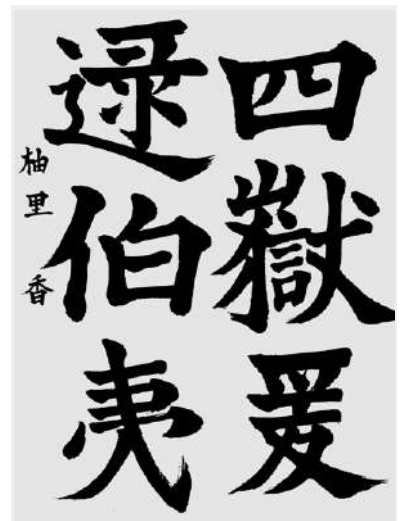 四嶽爰
逮伯夷
柚里香